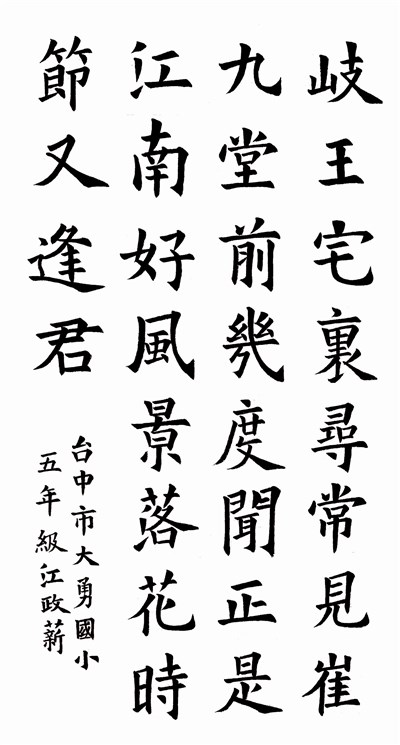 岐王宅裏尋常見崔
九堂前幾度聞正是
江南好風景落花時
節又逢君
台中市大勇國小
五年級江政薪